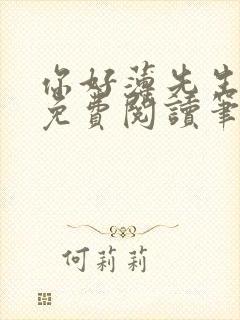 你好薄先生
免費閱讀筆
何莉莉